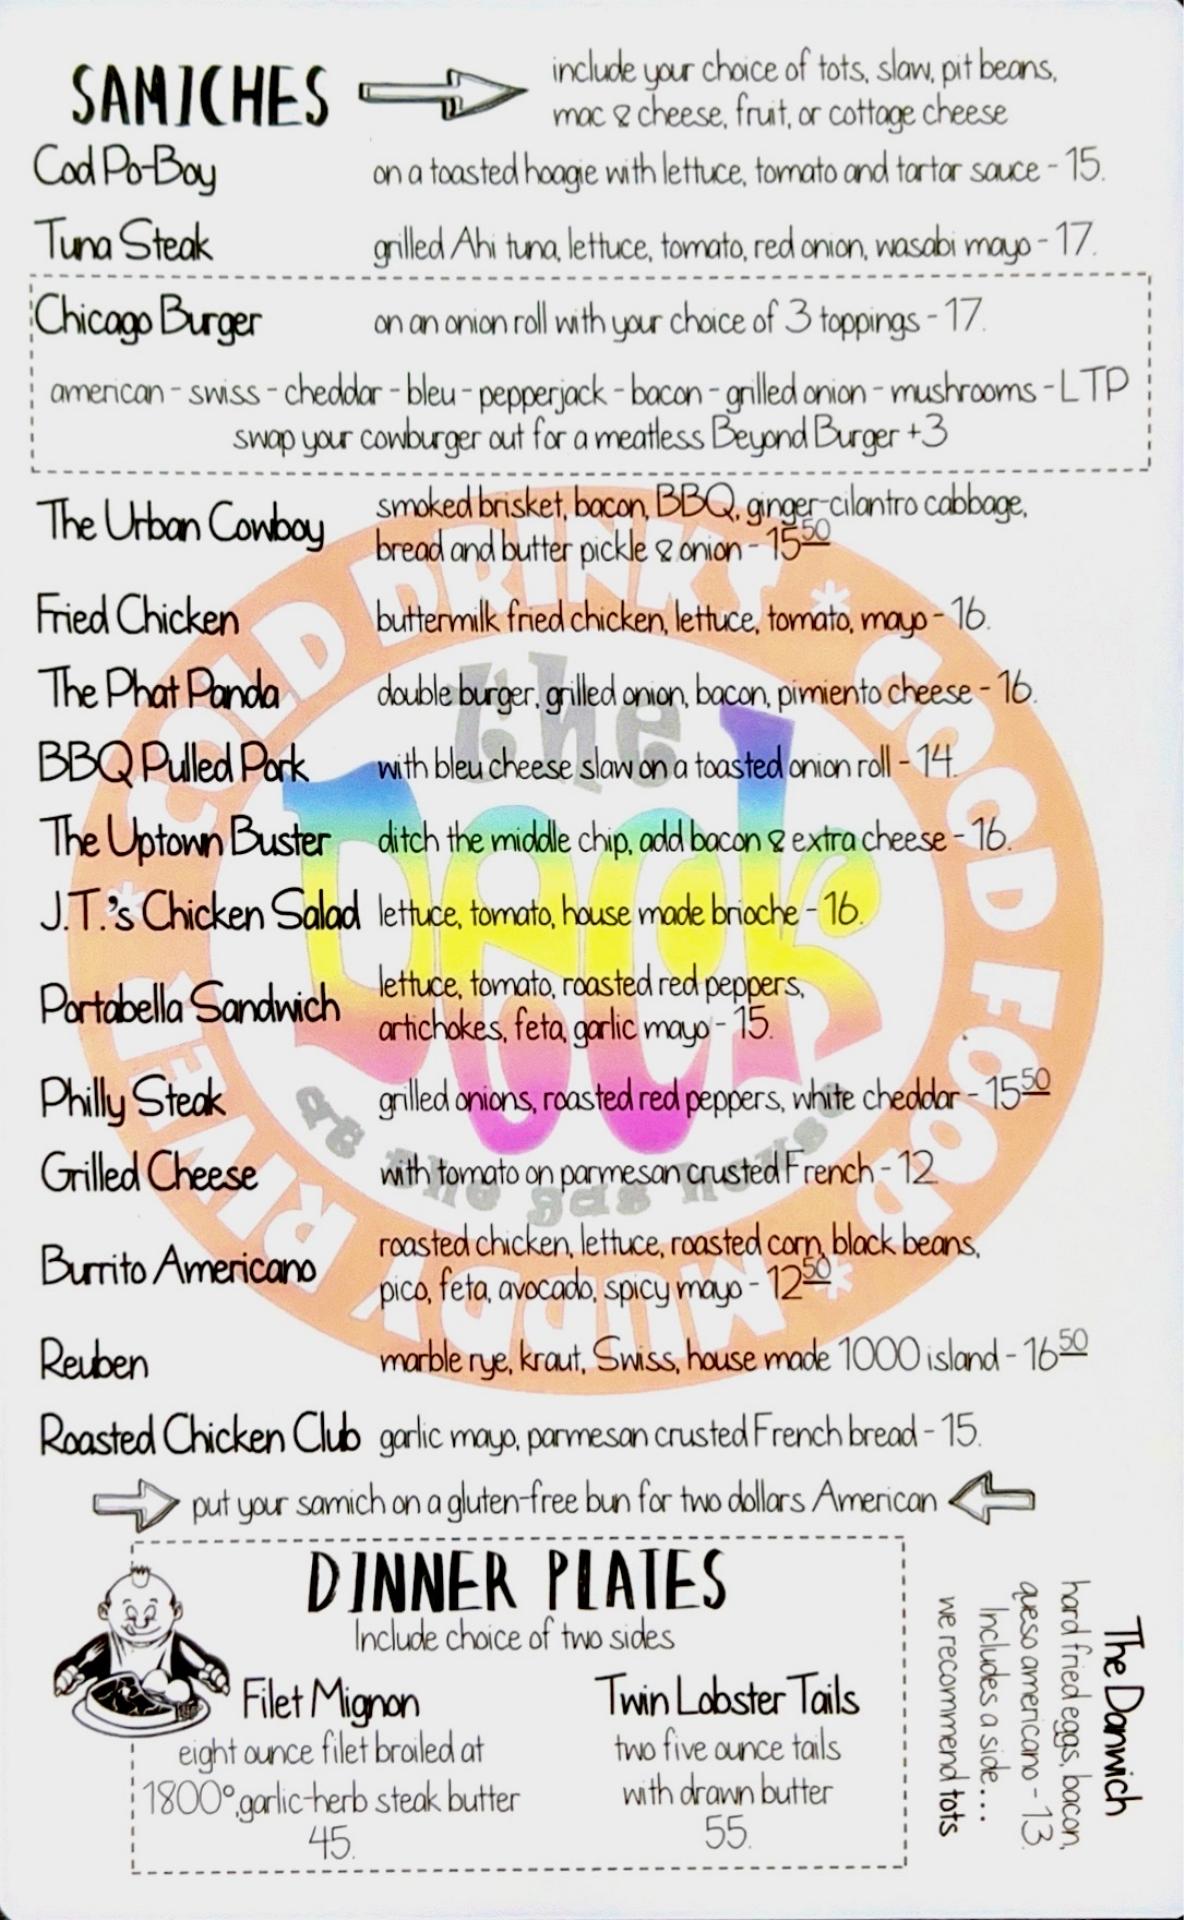 SAMICHES
include your choice of tots, slaw, pit beans,
mac & cheese, fruit, or cottage cheese
Cod Po-Boy on a toasted hoagie with lettuce, tomato and tartar sauce - 15.
Tuna Steak grilled Ahi tuna, lettuce, tomato, red onion, wasabi mayo - 17.
Chicago Burger on an onion roll with your choice of 3 toppings - 17.
american - swiss - cheddar - bleu - pepperjack - bacon - grilled onion - mushrooms - LTP
swap your cowburger out for a meatless Beyond Burger +3
The Urban Cowboy smoked brisket, bacon, BBQ, ginger-cilantro cabbage,
bread and butter pickle & onion - 15 50
Fried Chicken buttermilk fried chicken, lettuce, tomato, mayo - 16.
The Phat Panda double burger, grilled onion, bacon, pimiento cheese - 16.
BBQ Pulled Pork with bleu cheese slaw on a toasted onion roll - 14.
The Uptown Buster ditch the middle chip, add bacon & extra cheese - 16.
J.T.'s Chicken Salad lettuce, tomato, house made brioche - 16.
Portabella Sandwich lettuce, tomato, roasted red peppers,
artichokes, feta, garlic mayo - 15.
Philly Steak grilled onions, roasted red peppers, white cheddar - 15 50
Grilled Cheese with tomato on parmesan crusted French - 12
Burrito Americano roasted chicken, lettuce, roasted corn, black beans,
pico, feta, avocado, spicy mayo - 12 50
Reuben marble rye, kraut, Swiss, house made 1000 island - 16 50
Roasted Chicken Club garlic mayo, parmesan crusted French bread - 15.
put your samich on a gluten-free bun for two dollars American
DINNER PLATES
Include choice of two sides
Filet Mignon
eight ounce filet broiled at
1800°, garlic-herb steak butter
45.
Twin Lobster Tails
two five ounce tails
with drawn butter
55.
The Danwich
hard fried eggs, bacon,
queso americano - 13.
Includes a side...
we recommend tots
the
Dock
at the gas house
COLD DRINKS * GOOD FOOD * MUDDY RIVER *